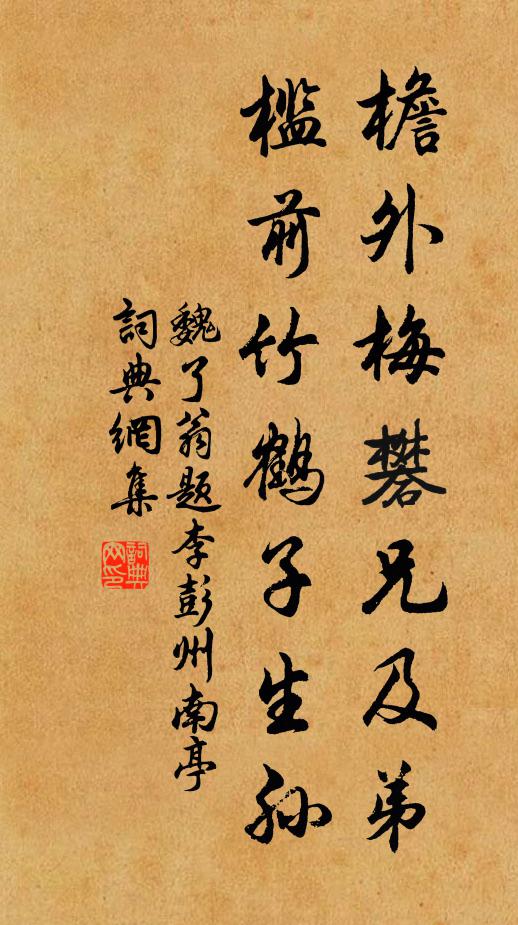 檐外梅礬兄及弟
檻前竹鶴子生孫
魏了翁題李彭州南亭
詞典網集
詞典网印